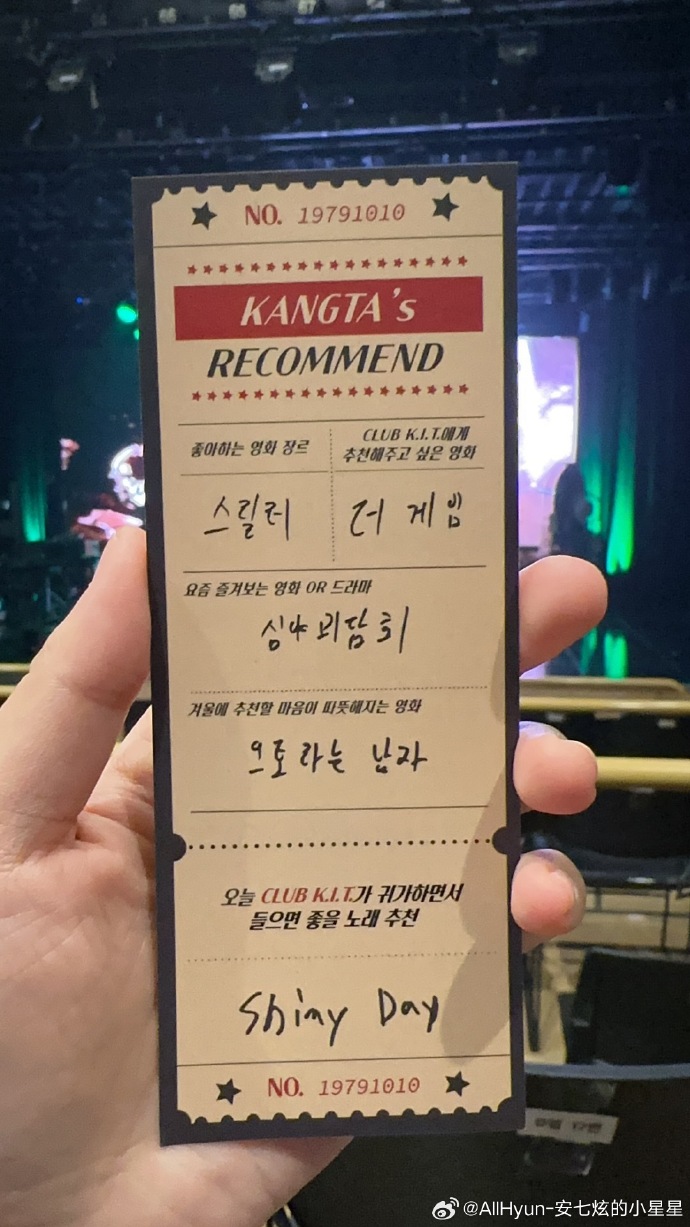 NO. 19791010
KANGTA's
RECOMMEND
좋아하는 영화 장르
스릴러
CLUB K.I.T.에게
추천해주고 싶은 영화
더 게임
요즘 즐겨보는 영화 OR 드라마
심야괴담회
겨울에 추천할 마음이 따뜻해지는 영화
오토라는 남자
오늘 CLUB K.I.T.가 귀가하면서
들으면 좋을 노래 추천
Shiny Day
NO. 19791010
@AllHyun-安七炫的小星星